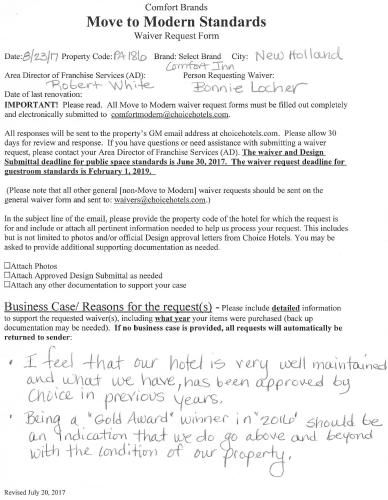 Comfort Brands
Move to Modern Standards
Waiver Request Form
Date: 8/23/17 Property Code: PA186 Brand: Select Brand City: New Holland
Comfort Inn
Area Director of Franchise Services (AD): Person Requesting Waiver:
Robert White Bonnie Locher
Date of last renovation:
IMPORTANT! Please read. All Move to Modern waiver request forms must be filled out completely
and electronically submitted to comfortmodern@choicehotels.com.)
All responses will be sent to the property's GM email address at choicehotels.com. Please allow 30
days for review and response. If you have questions or need assistance with submitting a waiver
request, please contact your Area Director of Franchise Services (AD). The waiver and Design
Submittal deadline for public space standards is June 30, 2017. The waiver request deadline for
guestroom standards is February 1, 2019.
(Please note that all other general [non-Move to Modern] waiver requests should be sent on the
general waiver form and sent to: waivers@choicehotels.com.)
In the subject line of the email, please provide the property code of the hotel for which the request is
for and include or attach all pertinent information needed to help us process your request. This includes
but is not limited to photos and/or official Design approval letters from Choice Hotels. You may be
asked to provide additional supporting documentation as needed.
☐Attach Photos
☐Attach Approved Design Submittal as needed
☐Attach any other documentation to support your case
Business Case/ Reasons for the request(s) - Please include detailed information
to support the requested waiver(s), including what year your items were purchased (back up
documentation may be needed). If no business case is provided, all requests will automatically be
returned to sender:
• I feel that our hotel is very well maintained
and what we have, has been approved by
Choice in previous years.
• Being a "Gold Award" winner in "2016" should be
an indication that we do go above and beyond
with the condition of our property.
Revised July 20, 2017